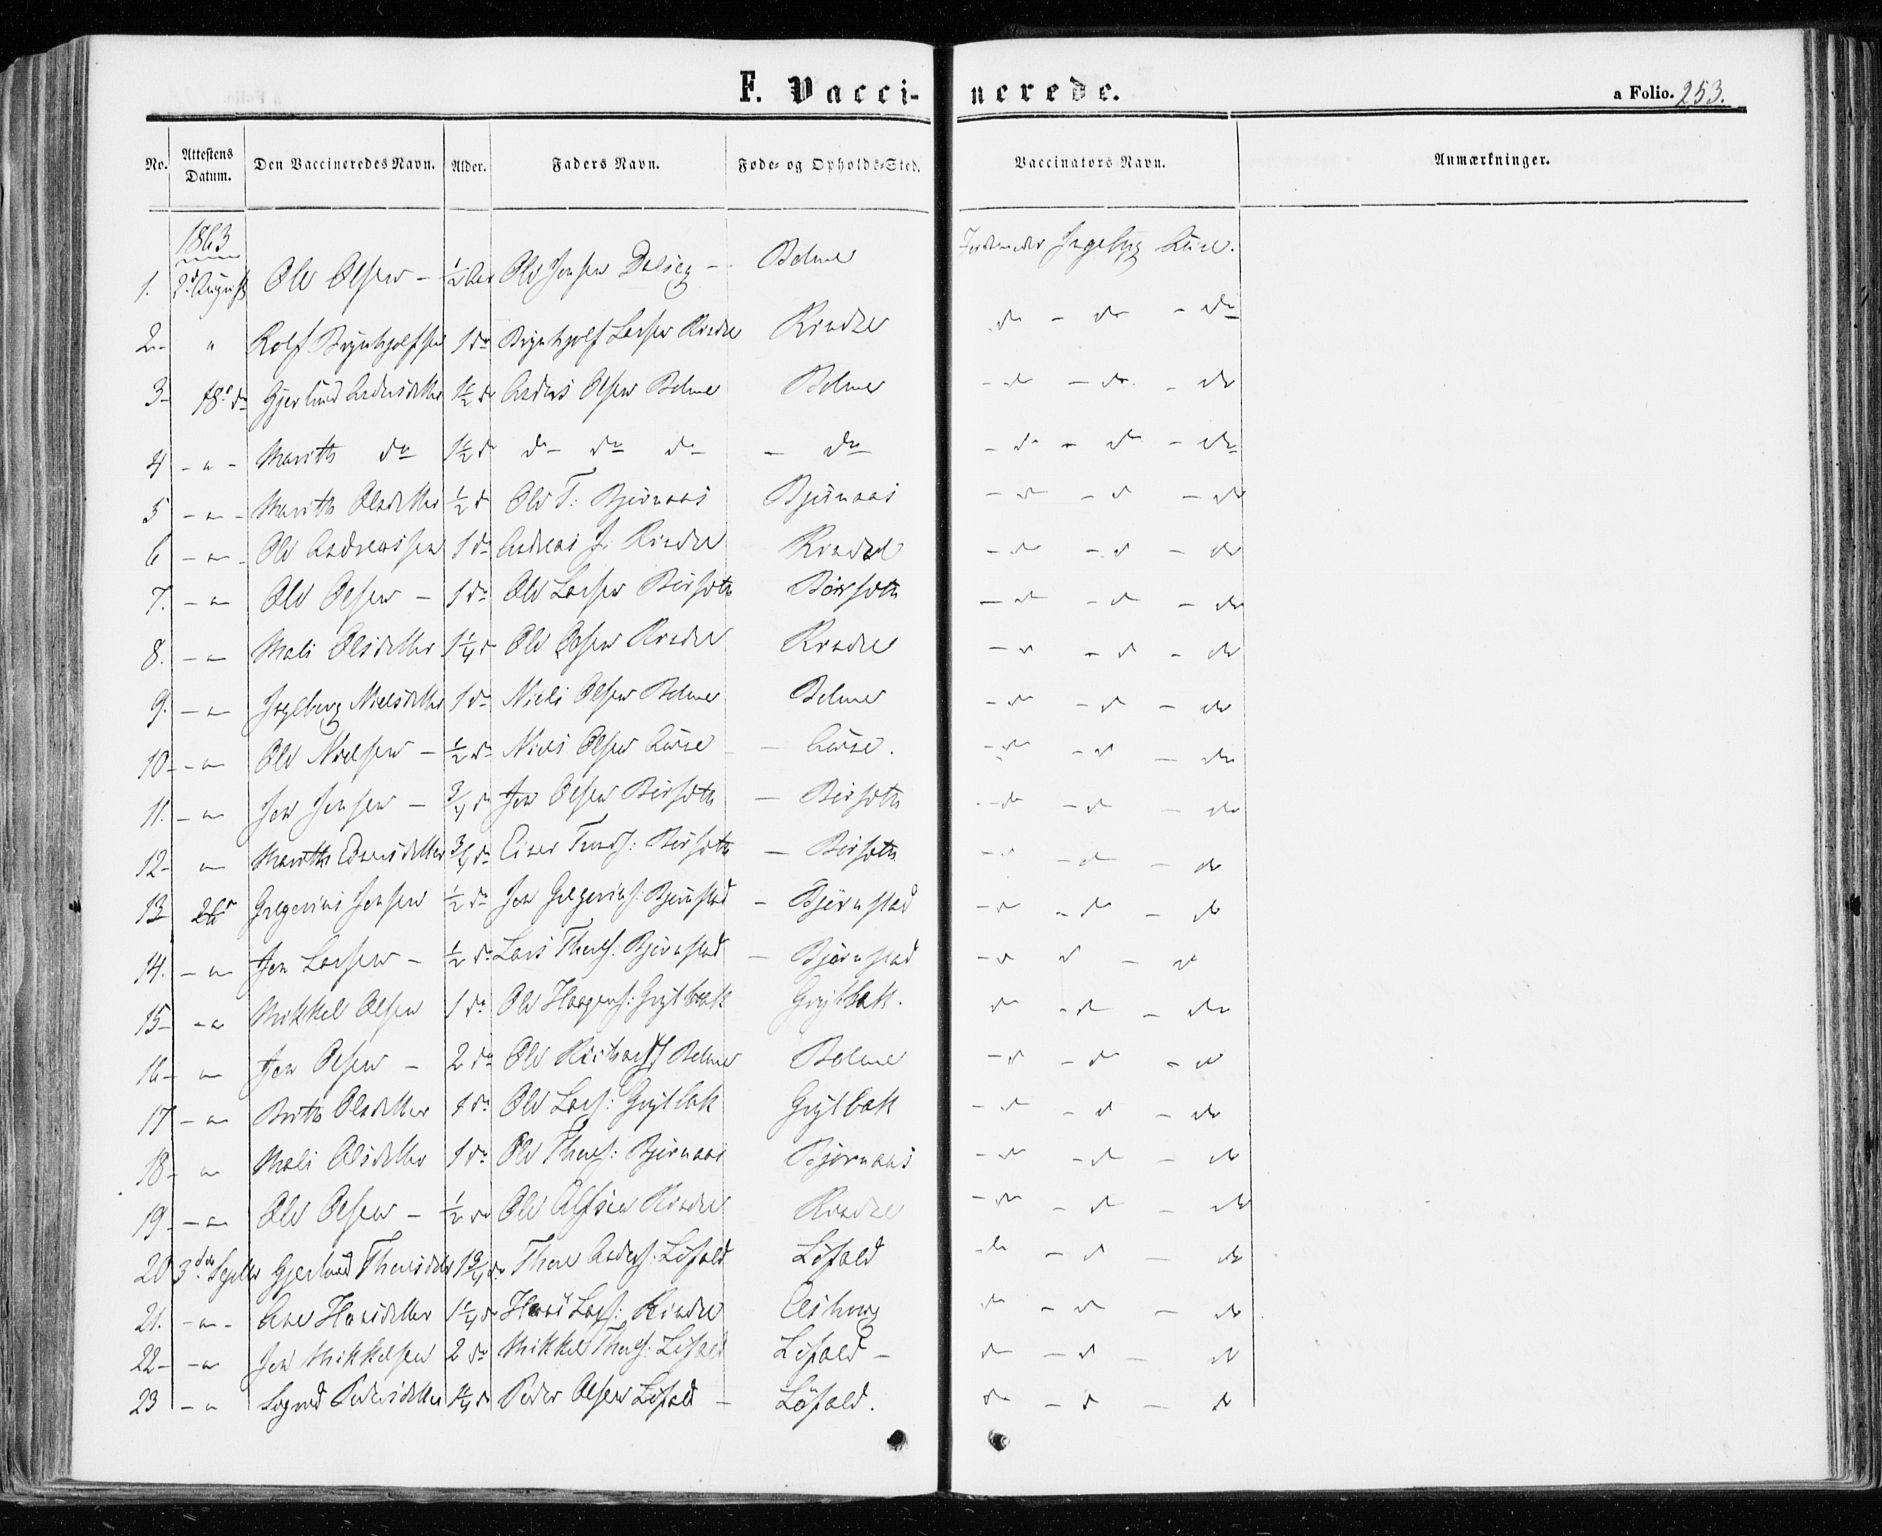 F. Vacci- nerede.
a Folio. 253.
No. Attestens Datum. Den Vaccineredes Navn. Alder. Faders Navn. Føde- og Opholds-Sted. Vaccinators Navn. Anmærkninger.
1863
1. 2d August Ole Olsen - 1/2 Ole Jonsen - Bolme Jordemoder Ingebrg
2- " Rolf Brynhjolfsen 1 do Brynhjolf Larsen Rindal Rindal do - do - do
3- 18 do Gjertrud Andersdatter 1 1/2 do Anders Olsen Bolme Bolme - do - do - do
4 - " - Marith do 1 1/2 do do do do - do - do - do - do
5 - " - Marith Olsdatter 1/2 do Ole T: Bjørnaas Bjørnaas - do - do - do
6 - " - Ole Andreassen 1 do Andreas J: Rindal Rindal - do - do - do
7. - " Ole Olsen - 1 do Ole Larsen Børseth Børseth - do - do - do
8. - " Mali Olsdatter 1 1/4 do Ole Olsen Rindal Rindal - do - do - do
9. - " Ingeberg Nielsdatter 1 do Niels Olsen Bolme Bolme - do - do - do
10 - - " Ole Nielsen - 1/2 do Niels Olsen - do - do - do
11. - " Jon Jonsen - 3/4 do Jon Olsen Børseth - Børseth - do - do - do
12- " Marith 3/4 do Børseth - Børseth - do - do - do
13 Gregorius Jonsen 1/2 do Jon Gregoriss: Bjørnstad - Bjørnstad - do - do - do
14. - " Jon Larsen - 1/2 do Lars Thores: Bjørnstad - Bjørnstad - do do - do
15- - " Mikkel Olsen 1 do Ole Haagens: Grytbak Grytbak. do - do - do
16- " Jon Olsen - 2 do Ole Bolme Bolme - do - do - do
17 - " Brit Olsdatter 1 do Ole Lars: Grytbak Grytbak - do - do - do
18- " Mali Olsdatter 1 do Ole Thores: Bjørnaas Bjørnaas - do - do - do
19 - - " Ole Olsen - 1/2 do Ole Rindal Rindal - do - do - do
20 3die Septbr Gjertrud Thoresdatter 1 3/4 do Thore Anders: Løfald Løfald do - do - do
21. - " - Ane Hansdatter 1 1/4 do Hans Lars: Rindal do - do - do
22- - " Jon Mikkelsen 2 do Mikkel Thores: Løfald Løfald - do - do - do
23 - " Sigrid Pedersdatter Peder Olsen Løfald - Løfald. do - do - do